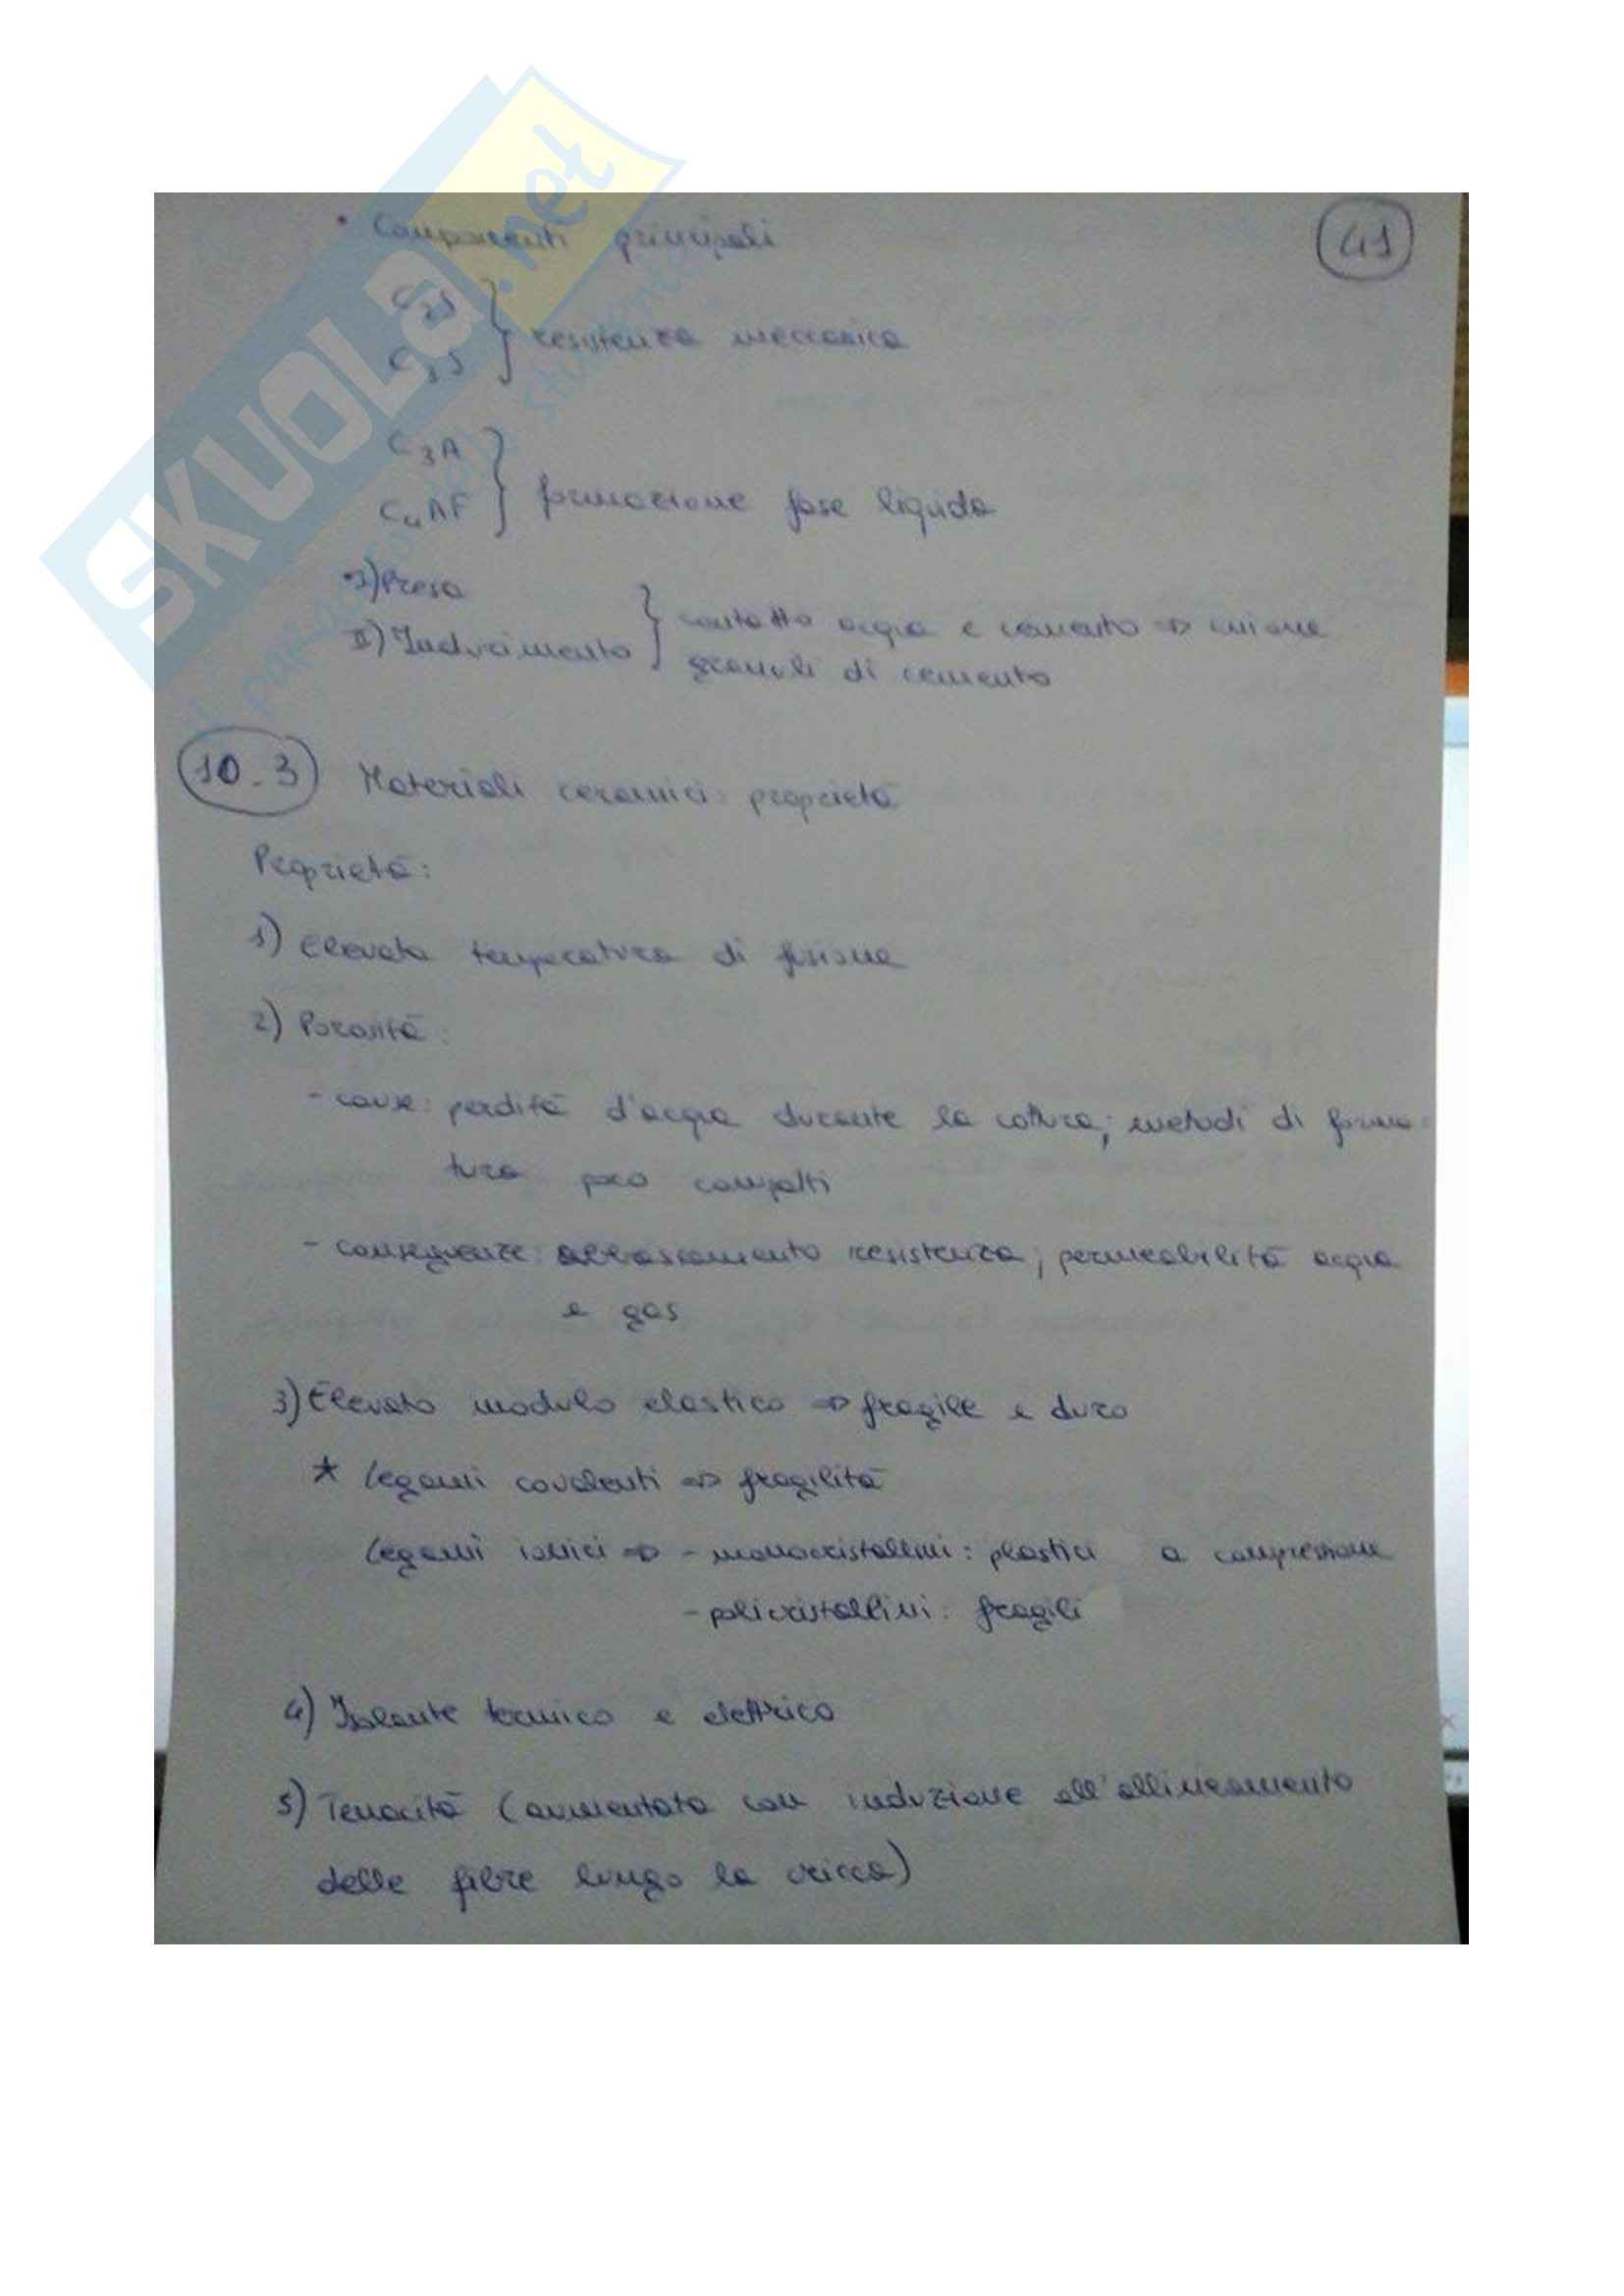 • Componenti principali
41
C₂S
C₃S } resistenza meccanica
C₃A
C₄AF } formazione fase liquida
• I) Presa
II) Indurimento } contatto acqua e cemento ⇒ unione
granuli di cemento
10.3 Materiali ceramici: proprietà
Poprietà:
1) Elevata temperatura di fusione
2) Porosità:
- cause: perdità d'acqua durante la cottura; metodi di forma-
tura poco compatti
- conseguenze: abbassamento resistenza; permeabilità acqua
e gas
3) Elevato modulo elastico ⇒ fragile e duro
* Legami covalenti ⇒ fragilità
Legami ionici ⇒ - monocristallini: plastici a compressione
- policristallini: fragili
4) Isolante termico e elettrico
5) Tenacità (aumentata con induzione all'allineamento
delle fibre lungo la cricca)
SKUOLA.net